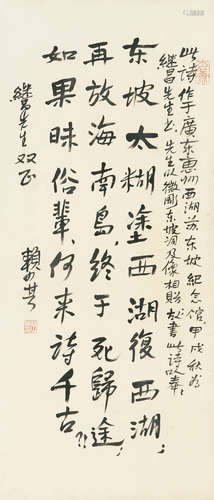 此诗作于廣东惠州西湖苏东坡纪念馆甲戌秋为
继昌先生书,先生以微东坡词及像相贻故书此诗以奉:
东坡太糊塗西湖復西湖;
再放海南島,终于死歸途;
如果昧俗輩,何来詩千古?!
赖少其
继昌先生双正